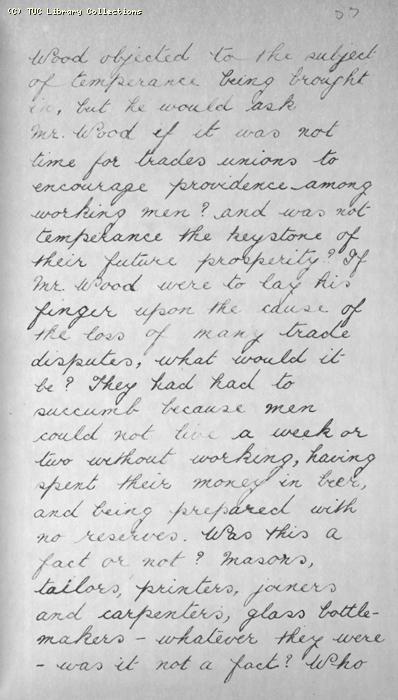 (C) TUC Library Collections
Wood objected to the subject
of temperance being brought
in, but he would ask
Mr. Wood if it was not
time for trades unions to
encourage providence among
working men? and was not
temperance the keystone of
their future prosperity? If
Mr. Wood were to lay his
finger upon the cause of
the loss of many trade
disputes, what would it
be? They had had to
succumb because men
could not live a week or
two without working, having
spent their money in beer,
and being prepared with
no reserves. Was this a
fact or not? Masons,
tailors, printers, joiners
and carpenters, glass bottle-
makers - whatever they were
- was it not a fact? Who